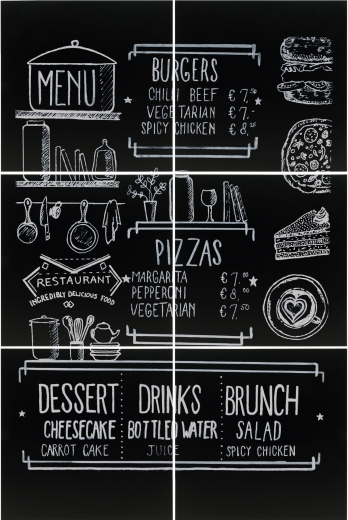 MENU
BURGERS
CHILLI BEEF €7,50
VEGETARIAN €7,-
SPICY CHICKEN €8,25
PIZZAS
MARGARITA €7.00
PEPPERONI €8.00
VEGETARIAN €7,50
RESTAURANT
INCREDIBLY DELICIOUS FOOD
DESSERT DRINKS BRUNCH
CHEESECAKE BOTTLED WATER SALAD
CARROT CAKE JUICE SPICY CHICKEN